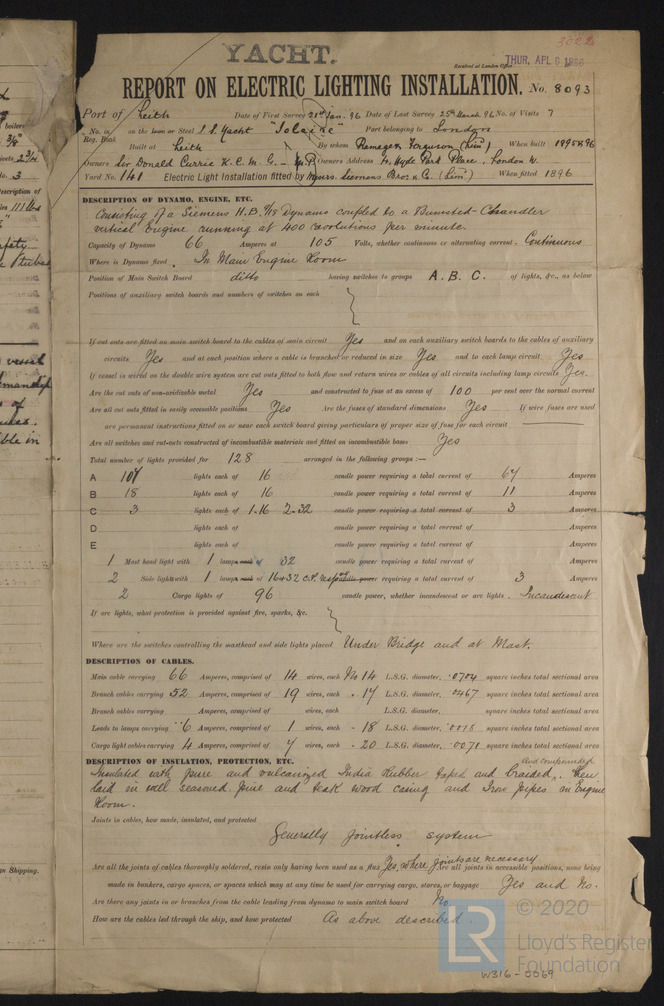 3022
YACHT.
Received at London Office THUR, APL 9 1896
REPORT ON ELECTRIC LIGHTING INSTALLATION. No. 8093
Port of Leith Date of First Survey 21st Jan. 96 Date of Last Survey 25th March 96 No. of Visits 7
No. in Reg. Book on the Iron or Steel S.S. Yacht "Iolaire" Part belonging to London
Built at Leith By whom Ramage & Ferguson (Lim) When built 1895 & 96
Owners Sir Donald Currie K.C.M.G. - M.P. Owners Address Hyde Park Place, London W.
Yard No. 141 Electric Light Installation fitted by Messrs. Siemens Bros. & Co. (Lim) When fitted 1896
DESCRIPTION OF DYNAMO, ENGINE, ETC.
Consisting of a Siemens H.B. Dynamo coupled to a Bumsted-Chandler
vertical Engine running at 400 revolutions per minute.
Capacity of Dynamo 66 Amperes at 105 Volts, whether continuous or alternating current. Continuous
Where is Dynamo fixed. In Main Engine Room
Position of Main Switch Board ditto having switches to groups A. B. C. of lights, &c., as below
Positions of auxiliary switch boards and numbers of switches on each
If cut outs are fitted on main switch board to the cables of main circuit Yes and on each auxiliary switch boards to the cables of auxiliary
circuits Yes and at each position where a cable is branched or reduced in size Yes and to each lamp circuit Yes
If vessel is wired on the double wire system are cut outs fitted to both flow and return wires or cables of all circuits including lamp circuits Yes.
Are the cut outs of non-oxidizable metal Yes and constructed to fuse at an excess of 100 per cent over the normal current
Are all cut outs fitted in easily accessible positions Yes Are the fuses of standard dimensions Yes If wire fuses are used
are permanent instructions fitted on or near each switch board giving particulars of proper size of fuse for each circuit
Are all switches and cut-outs constructed of incombustible materials and fitted on incombustible bases Yes
Total number of lights provided for 128 arranged in the following groups :-
A 107 lights each of 16 candle power requiring a total current of 64 Amperes
B 18 lights each of 16 candle power requiring a total current of 11 Amperes
C 3 lights each of 1-16 2-32 candle power requiring a total current of 3 Amperes
D lights each of candle power requiring a total current of Amperes
E lights each of candle power requiring a total current of Amperes
1 Mast head light with 1 lamp each of 32 candle power requiring a total current of Amperes
2 Side lights with 1 lamp each of 16+32 C.P. candle power requiring a total current of 3 Amperes
2 Cargo lights of 96 candle power, whether incandescent or arc lights. Incandescent
If arc lights, what protection is provided against fire, sparks, &c.
Where are the switches controlling the masthead and side lights placed Under Bridge and at Mast.
DESCRIPTION OF CABLES.
Main cable carrying 66 Amperes, comprised of 14 wires, each No 14 L.S.G. diameter, .0704 square inches total sectional area
Branch cables carrying 52 Amperes, comprised of 19 wires, each . 17 L.S.G. diameter, .0467 square inches total sectional area
Branch cables carrying Amperes, comprised of wires, each L.S.G. diameter, square inches total sectional area
Leads to lamps carrying 6 Amperes, comprised of 1 wires, each - 18 L.S.G. diameter, .0018 square inches total sectional area
Cargo light cables carrying 4 Amperes, comprised of 7 wires, each - 20 L.S.G. diameter, .0071 square inches total sectional area
DESCRIPTION OF INSULATION, PROTECTION, ETC.
and compounded
Insulated with pure and vulcanized India Rubber taped and braided, then
laid in well seasoned pine and teak wood casing and Iron pipes in Engine
Room.
Joints in cables, how made, insulated, and protected
Generally jointless system
Are all the joints of cables thoroughly soldered, resin only having been used as a flux Yes, where joints are necessary Are all joints in accessible positions, none being
made in bunkers, cargo spaces, or spaces which may at any time be used for carrying cargo, stores, or baggage Yes and No.
Are there any joints in or branches from the cable leading from dynamo to main switch board No
How are the cables led through the ship, and how protected As above described.
LR © 2020
Lloyd's Register
Foundation
W316-0069